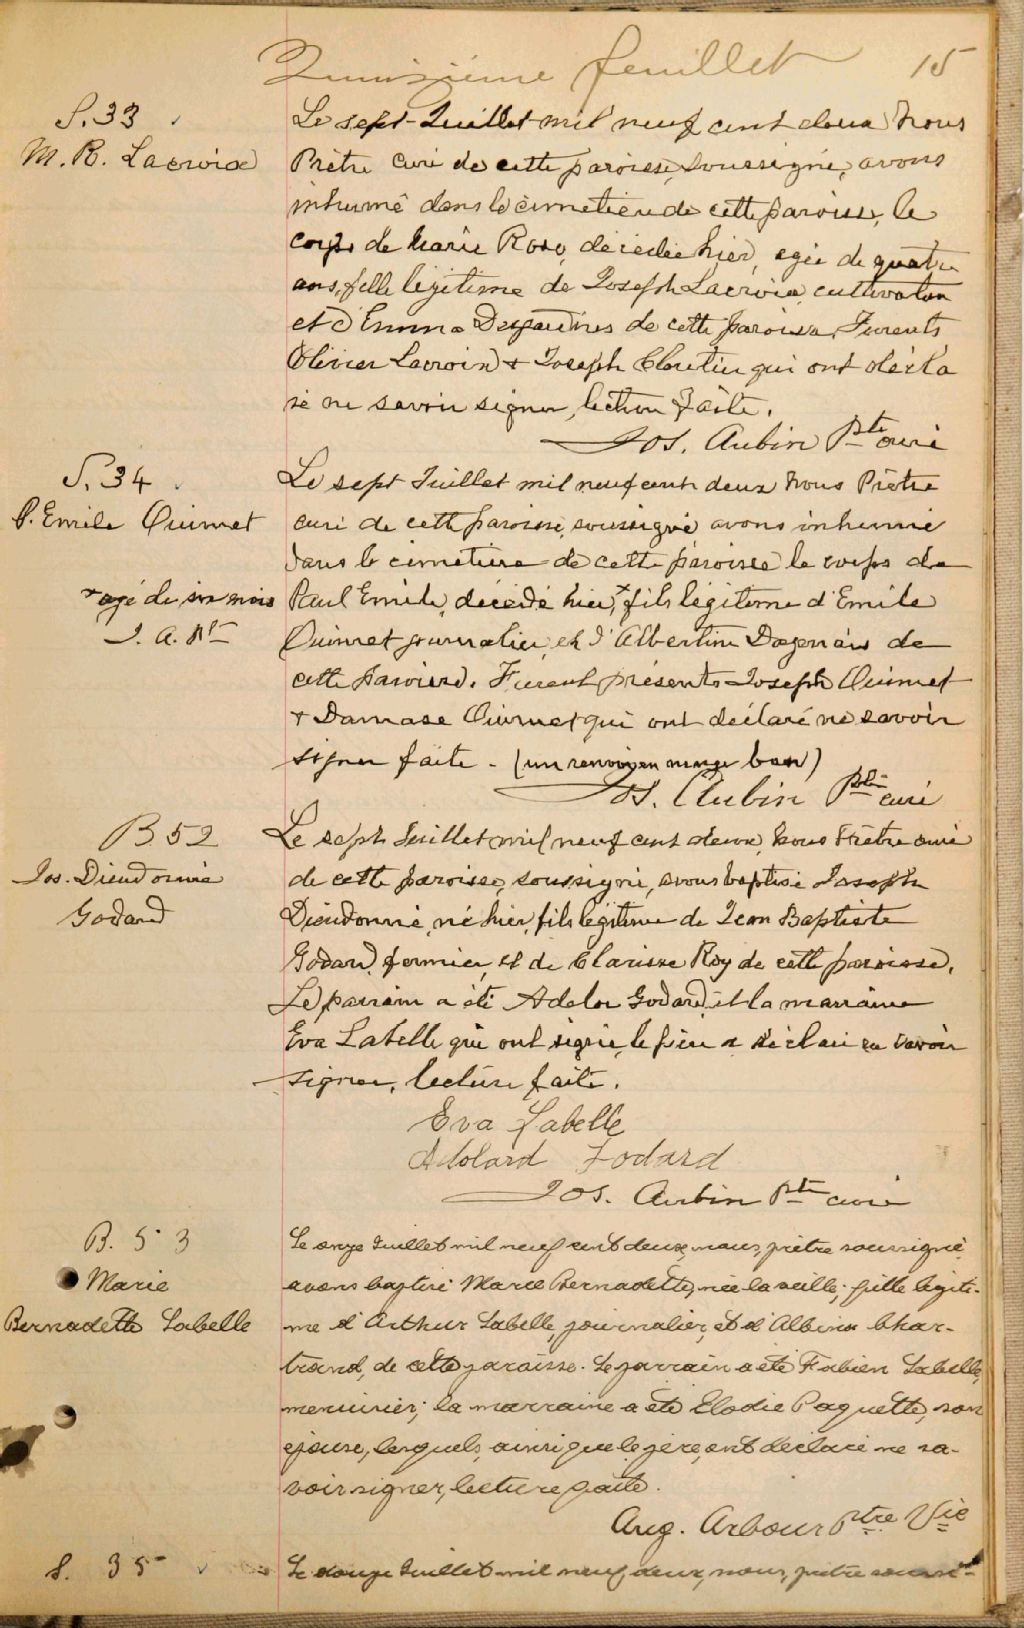 Quinzième feuillet 15
S. 33
M. R. Lacroix
Le sept Juillet mil neuf cent deux Nous
Prètre curé de cette paroisse, soussigné, avons
inhumé dans le cimetière de cette paroisse, le
corps de Marie Rose, décédée hier, agée de quatre
ans, fille légitime de Joseph Lacroix, cultivateur
et d'Emma Desjardines de cette paroisse. Furents
Olivier Lacroix + Joseph Cloutier qui ont décla
ré ne savoir signer, lecture faite.
Jos. Aubin Ptre curé
S. 34
P. Emile Ouimet
Le sept Juillet mil neuf cent deux Nous Prètre
curé de cette paroisse, soussigné avons inhumé
dans le cimetière de cette paroisse le corps de
+ agé de six mois
J. A. Ptre
Paul Emile, décédé hier, + fils légitime d'Emile
Ouimet journalier, et d'Albertine Dagenais de
cette paroisse. Furent présents Joseph Ouimet
+ Damase Ouimet qui ont déclaré ne savoir
signer faite - (un renvoi en marge bon)
Jos. Aubin Ptre curé
B. 52
Jos. Dieudonné
Godard
Le sept Juillet mil neuf cent deux, Nous Prètre curé
de cette paroisse, soussigné, avons baptisé Joseph
Dieudonné, né hier, fils légitime de Jean Baptiste
Godard, fermier, et de Clarisse Roy de cette paroisse.
Le parrain a été Adelar Godard et la marraine
Eva Labelle qui ont signé, le père a déclaré ne savoir
signer, lecture faite.
Eva Labelle
Adolard Godard
Jos. Aubin Ptre curé
B. 53
Marie
Bernadette Labelle
Le onze Juillet mil neuf cent deux, nous, prêtre soussigné
avons baptisé Marie Bernadette, née la veille, fille légiti-
me d'Arthur Labelle, journalier, et d'Albina Char-
trand, de cette paroisse. Le parrain a été Fabien Labelle,
menuisier; la marraine a été Elodie Paquette, son
épouse, lesquels, ainsi que le père, ont déclaré ne sa-
voir signer, lecture faite.
Aug. Arbour Ptre Vic
S. 35
Le douze Juillet mil neuf deux, nous, prêtre soussi-